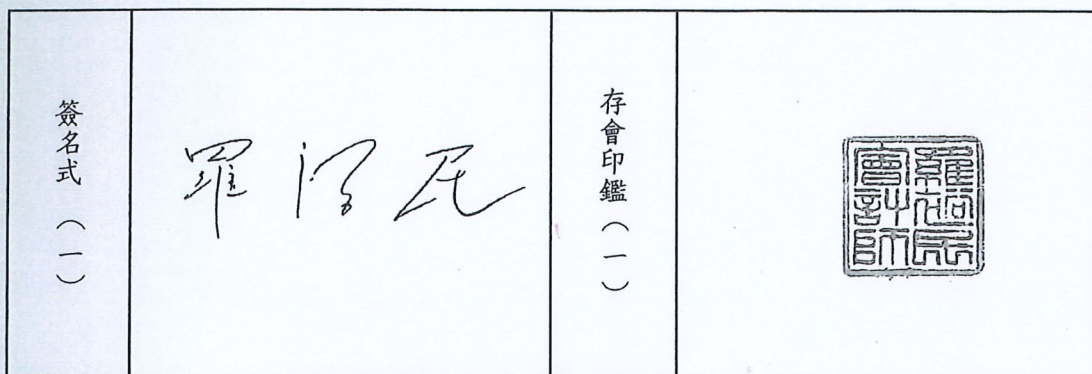 簽名式（一）
羅 民
存會印鑑（一）
羅 民
會計師